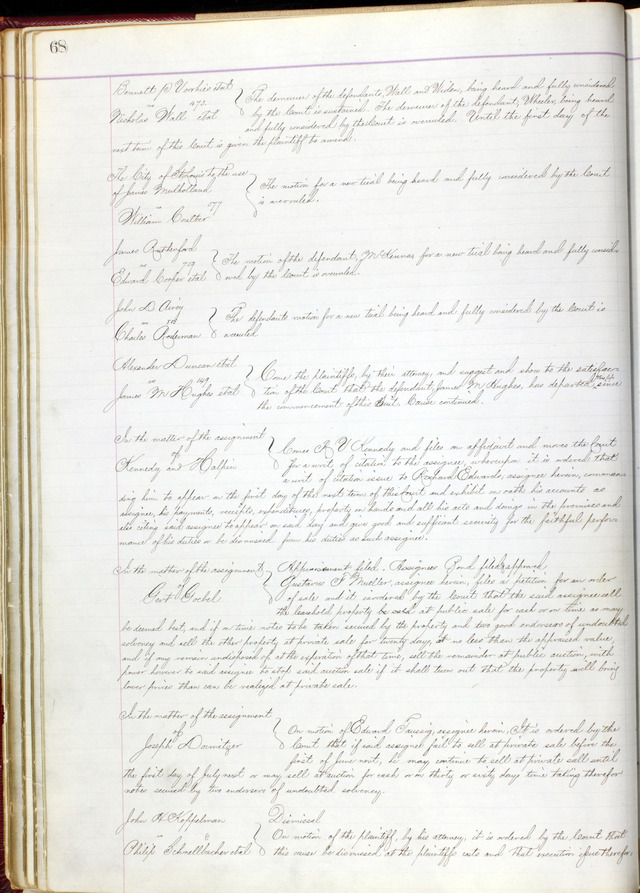 68
Bennett D Vorhies etal
vs 473
Nicholas Wall etal
The demurrer of the defendants, Wall and Widen, being heard and fully considered
by the Court is sustained. The demurrer of the defendant, Wheeler, being heard
and fully considered by the Court is overruled. Until the first day of the
next term of this Court is given the plaintiff to amend.
The City of St Louis to the use
of James Mulholland
vs 77
William Coulter
The motion for a new trial being heard and fully considered by the Court
is overruled.
James Rutherford
vs 79
Edward Cooper etal
The motion of the defendant, McKenna, for a new trial being heard and fully consid-
ered by the Court is overruled.
John D
vs
Charles Roderman
The defendants motion for a new trial being heard and fully considered by the Court is
overruled
Alexander Duncan etal
vs 149
James M Hughes etal
Come the plaintiffs, by their attorney, and suggest and show to the satisfac-
tion of the Court that the defendant James M Hughes, has departed this life since
the commencement of this Suit. Cause continued.
In the matter of the assignment
of
Kennedy and Halpin
Comes A V Kennedy and files an affidavit and moves the Court
for a writ of citation to the assignee, whereupon it is ordered that
a writ of citation issue to Richard Edwards, assignee herein, comman-
ding him to appear on the first day of the next term of this Court and exhibit on oath his accounts as
assignee, his payments, receipts, expenditures, property on hand and all his acts and doings in the premises and
also citing said assignee to appear on said day and give good and sufficient security for the faithful perfor-
mance of his duties or be dismissed from his duties as such assignee.
In the matter of the assignment
of
Gert Goebel
Appraisement filed. Assignees Bond filed & approved
Gustavus F Mueller, assignee herein, files a petition for an order
of sale and it is ordered by the Court that the said assignee sell
the leasehold property at public sale for cash or on time as may
be deemed best, and if on time notes to be taken secured by the property and two good endorsers of undoubted
solvency and sell the other property at private sale for twenty days, at no less than the appraised value,
and if any remain undisposed of at the expiration of that time, sell the remainder at public auction, with
power however to said assignee to stop said auction sale if it shall turn out that the property will bring
lower prices than can be realized at private sale.
In the matter of the assignment
of
Joseph
On motion of Edward Taussig, assignee herein, It is ordered by the
Court that if said assignee fail to sell at private sale before the
first of June next, he may continue to sell at private sale until
the first day of July next or may sell at auction for cash or on thirty or sixty days time taking therefor
notes secured by two endorsers of undoubted solvency.
John H Koppelman
vs
Philip Schnellbacher etal
Dismissal
On motion of the plaintiff, by his attorney, it is ordered by the Court that
this cause be dismissed at the plaintiffs costs and that execution issue therefor.